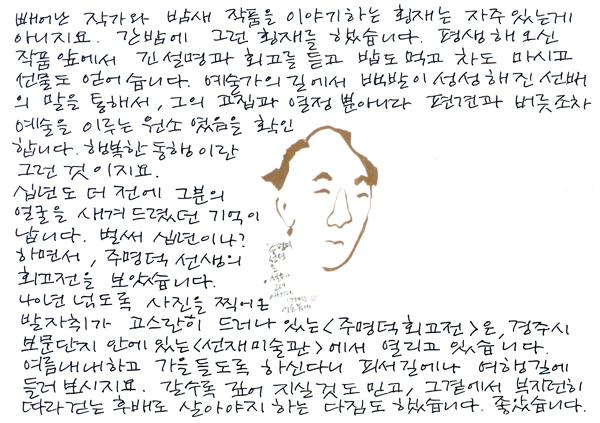 빼어난 작가와 밤새 작품을 이야기하는 횡재는 자주 있는게
아니지요. 간밤에 그런 횡재를 했습니다. 평생 해오신
작품 앞에서 긴 설명과 회고를 듣고 밥도 먹고 차도 마시고
선물도 얻어습니다. 예술가의 길에서 백발이 성성해진 선배
의 말을 통해서, 그의 고집과 열정 뿐 아니라 편견과 버릇조차
예술을 이루는 원소 였음을 확인
합니다. 행복한 동행 이란
그런 것 이지요.
십년도 더 전에 그분의
얼굴을 새겨 드렸던 기억이
납니다. 벌써 십년이나?
하면서, 주명덕 선생의
회고전을 보았습니다.
40년 넘도록 사진을 찍어온
발자취가 고스란히 드러나 있는 <주명덕 회고전>은, 경주시
보문단지 안에 있는 <선재미술관>에서 열리고 있습니다.
여름내내하고 가을들도록 하신다니 피서길에나 여행길에
들러 보시지요. 갈수록 깊어 지실 것도 믿고, 그 곁에서 부지런히
따라 걷는 후배로 살아야지 하는 다짐도 했습니다. 좋았습니다.